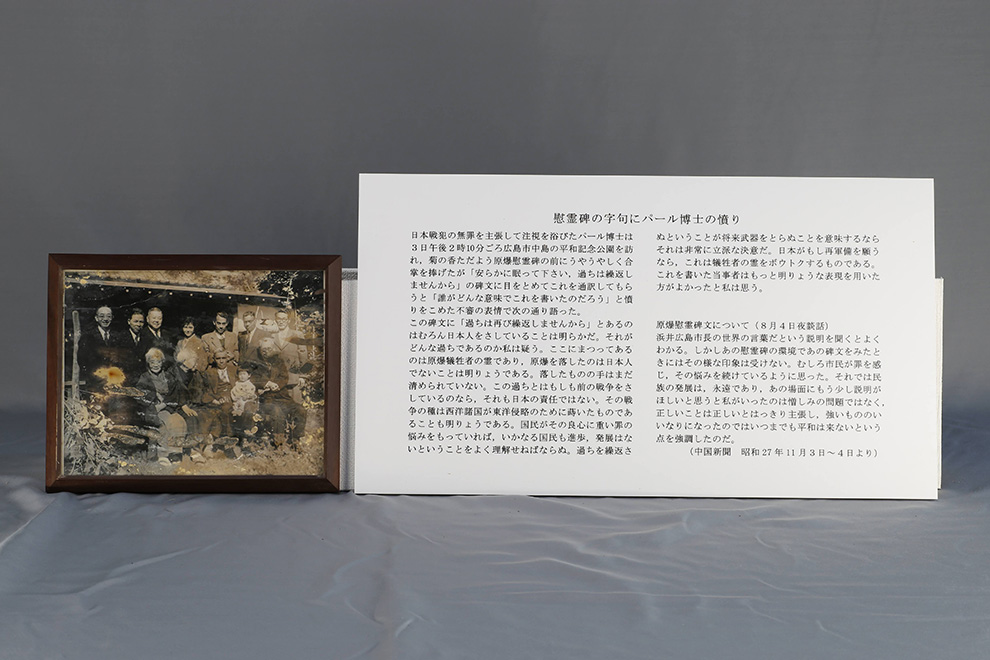 慰霊碑の字句にパール博士の憤り
日本戦犯の無罪を主張して注視を浴びたパール博士は
３日午後２時10分ごろ広島市中島の平和記念公園を訪
れ，菊の香ただよう原爆慰霊碑の前にうやうやしく合
掌を捧げたが「安らかに眠って下さい，過ちは繰返し
ませんから」の碑文に目をとめてこれを通訳してもら
うと「誰がどんな意味でこれを書いたのだろう」と憤
りをこめた不審の表情で次の通り語った。
この碑文に「過ちは再び繰返しませんから」とあるの
はむろん日本人をさしていることは明らかだ。それが
どんな過ちであるのか私は疑う。ここにまつってある
のは原爆犠牲者の霊であり，原爆を落したのは日本人
でないことは明りょうである。落したものの手はまだ
清められていない。この過ちとはもしも前の戦争をさ
しているのなら，それも日本の責任ではない。その戦
争の種は西洋諸国が東洋侵略のために蒔いたものであ
ることも明りょうである。国民がその良心に重い罪の
悩みをもっていれば，いかなる国民も進歩，発展はな
いということをよく理解せねばならぬ。過ちを繰返さ
ぬということが将来武器をとらぬことを意味するなら
それは非常に立派な決意だ。日本がもし再軍備を願う
なら，これは犠牲者の霊をボウトクするものである。
これを書いた当事者はもっと明りょうな表現を用いた
方がよかったと私は思う。
原爆慰霊碑文について（８月４日夜談話）
浜井広島市長の世界の言葉だという説明を聞くとよく
わかる。しかしあの慰霊碑の環境であの碑文をみたと
きにはその様な印象は受けない。むしろ市民が罪を感
じ，その悩みを続けているように思った。それでは民
族の発展は，永遠であり，あの場面にもう少し説明が
ほしいと思うと私がいったのは憎しみの問題ではなく，
正しいことは正しいとはっきり主張し，強いもののい
いなりになったのではいつまでも平和は来ないという
点を強調したのだ。
（中国新聞　昭和27年11月３日〜４日より）